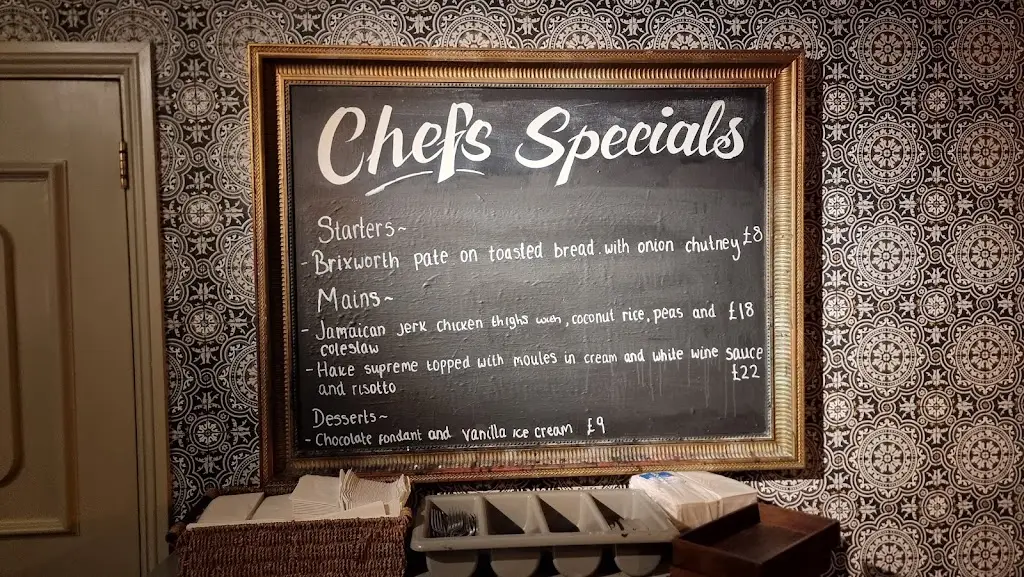 Chefs Specials
Starters~
- Brixworth pate on toasted bread. with onion chutney £8
Mains~
- Jamaican Jerk chicken thighs with, coconut rice, peas and £18
coleslaw
- Hake supreme topped with moules in cream and white wine sauce
and risotto £22
Desserts~
- Chocolate fondant and vanilla ice cream £9